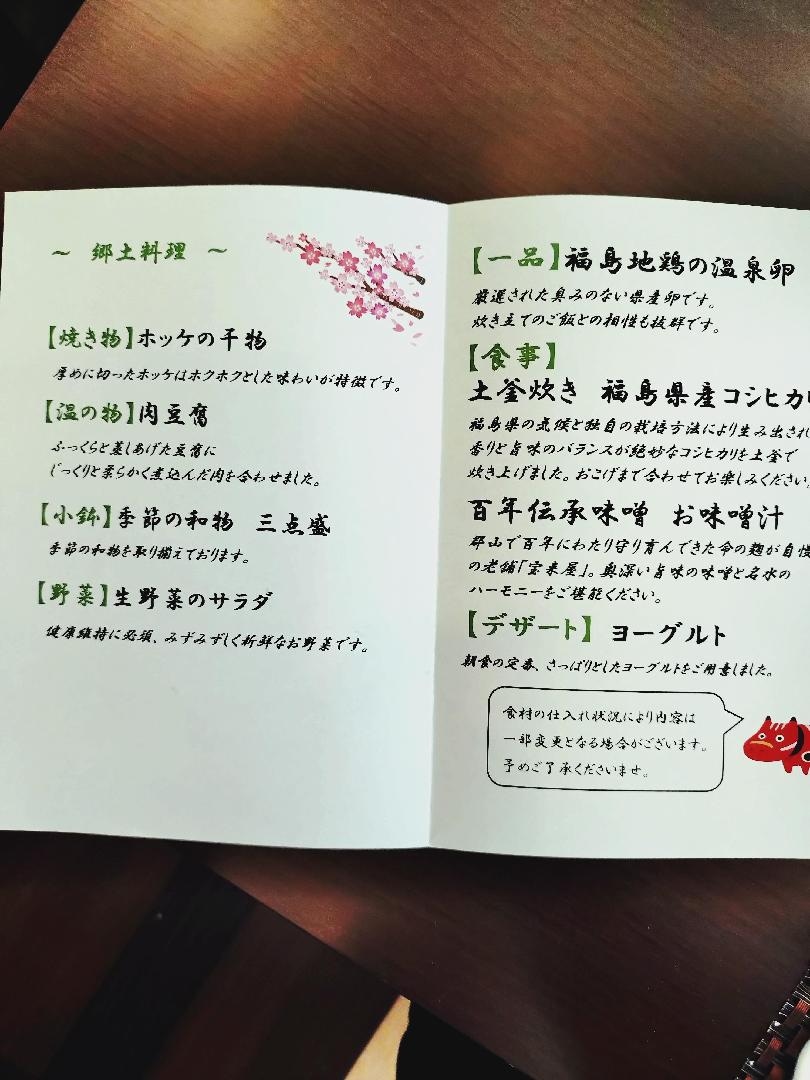 ～ 郷土料理 ～
【焼き物】ホッケの干物
厚めに切ったホッケはホクホクとした味わいが特徴です。
【温の物】肉豆腐
ふっくらと蒸しあげた豆腐に
じっくりと柔らかく煮込んだ肉を合わせました。
【小鉢】季節の和物 三点盛
季節の和物を取り揃えております。
【野菜】生野菜のサラダ
健康維持に必須、みずみずしく新鮮なお野菜です。
【一品】福島地鶏の温泉卵
厳選された臭みのない県産卵です。
炊き立てのご飯との相性も抜群です。
【食事】
土釜炊き 福島県産コシヒカリ
福島県の気候と独自の栽培方法により生み出され
香りと旨味のバランスが絶妙なコシヒカリを土釜で
炊き上げました。おこげまで合わせてお楽しみください。
百年伝承味噌 お味噌汁
郡山で百年にわたり守り育んできた命の麹が自慢
の老舗「宝来屋」。奥深い旨味の味噌と名水の
ハーモニーをご堪能ください。
【デザート】 ヨーグルト
朝食の定番、さっぱりとしたヨーグルトをご用意しました。
食材の仕入れ状況により内容は
一部変更となる場合がございます。
予めご了承くださいませ。